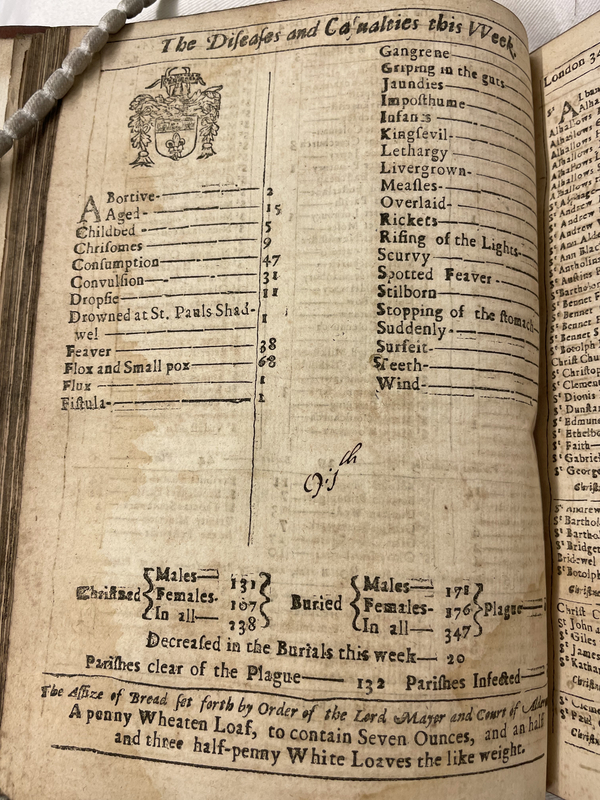 The Diſeaſes and Caſualties this Week.
ABortive- 2
Aged- 15
Childbed- 5
Chriſomes- 9
Conſumption- 47
Convulſion- 31
Dropſie- 11
Drowned at St. Pauls Shad-
wel 1
Feaver- 38
Flox and Small pox- 68
Flux- 1
Fiſtula- 1
Gangrene
Griping in the guts
Jaundies
Impoſthume
Infants
Kingſevil-
Lethargy
Livergrown-
Meaſles-
Overlaid-
Rickets-
Riſing of the Lights-
Scurvy
Spotted Feaver-
Stilborn
Stopping of the ſtomach
Suddenly-
Surfeit-
Teeth-
Wind-
Chriſtned
Males- 131
Females- 107
In all- 238
Buried
Males- 171
Females- 176
In all- 347
Plague-
Decreaſed in the Burials this week- 20
Pariſhes clear of the Plague- 132 Pariſhes Infected-
The Aſſize of Bread ſet forth by Order of the Lord Mayor and Court of
A penny Wheaten Loaf, to contain Seven Ounces, and an half
and three half-penny White Loaves the like weight.
London
St Andrew
St Ann
St Bennet
St Botolph
Chriſt
St Chriſtop
St Clement
St Dionis
St Dunſtan
St Edmund
St Ethelbo
St Faith-
St Gabriel
St George
St Andrew
St Bartho
St Bridget
Bridewel
St Botolph
Chriſt C
St John
St Giles
St James
St Kathar
St Cleme
St Paul